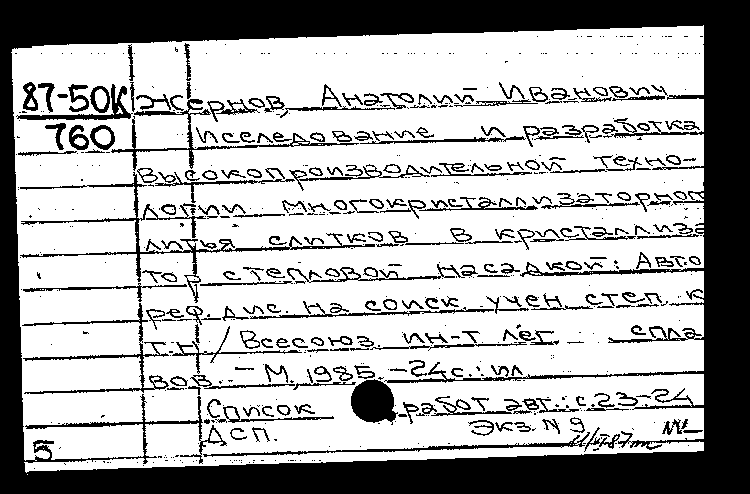 87-50К Жернов, Анатолий Иванович
760 Исследование и разработка
высокопроизводительной техно-
логии многокристаллизаторног
литья слитков в кристаллиза
тор с тепловой насадкой: Авто
реф. дис. на соиск учен степ к
т.н. / Всесоюз. ин-т лег. спла
вов. - М, 1985. - 24 с.: ил
Список работ авт.: с.23-24
ДСП. Экз. N 9
5